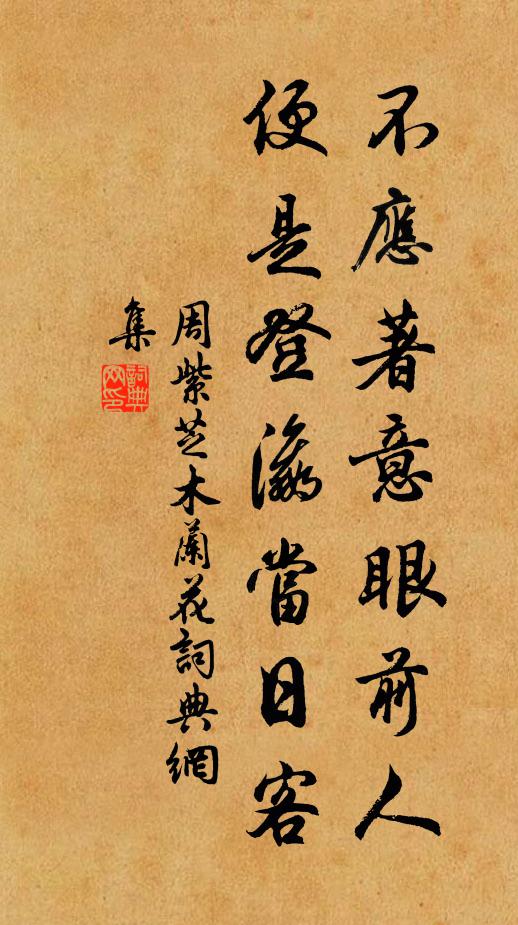 不應著意眼前人
便是登瀛當日客
周紫芝木蘭花詞典網
集
詞典網印